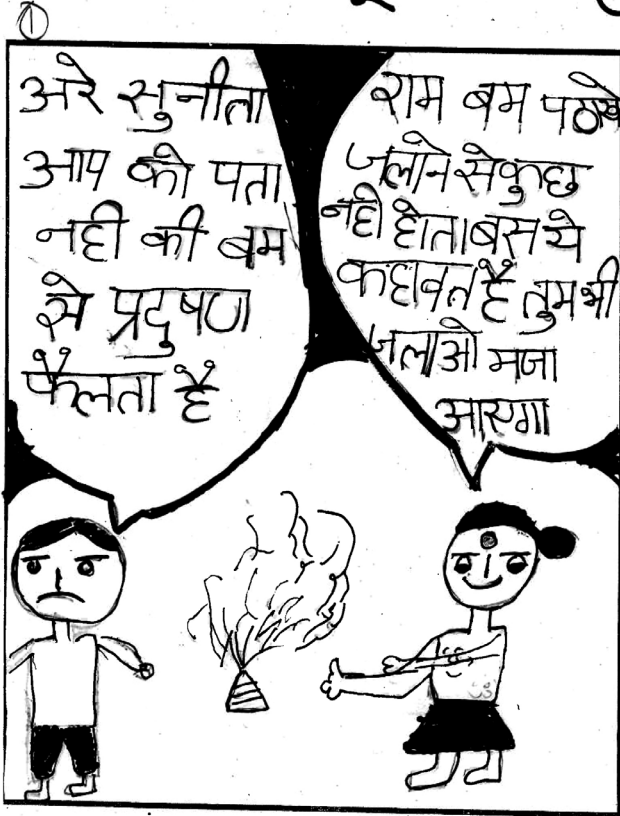 ①
अरे सुनीता
आप को पता
नही की बम
से प्रदुषण
फैलता है
राम बम पठाखे
जलाने से कुछ
नही होता बस ये
कहावत है तुम भी
जलाओ मजा
आएगा